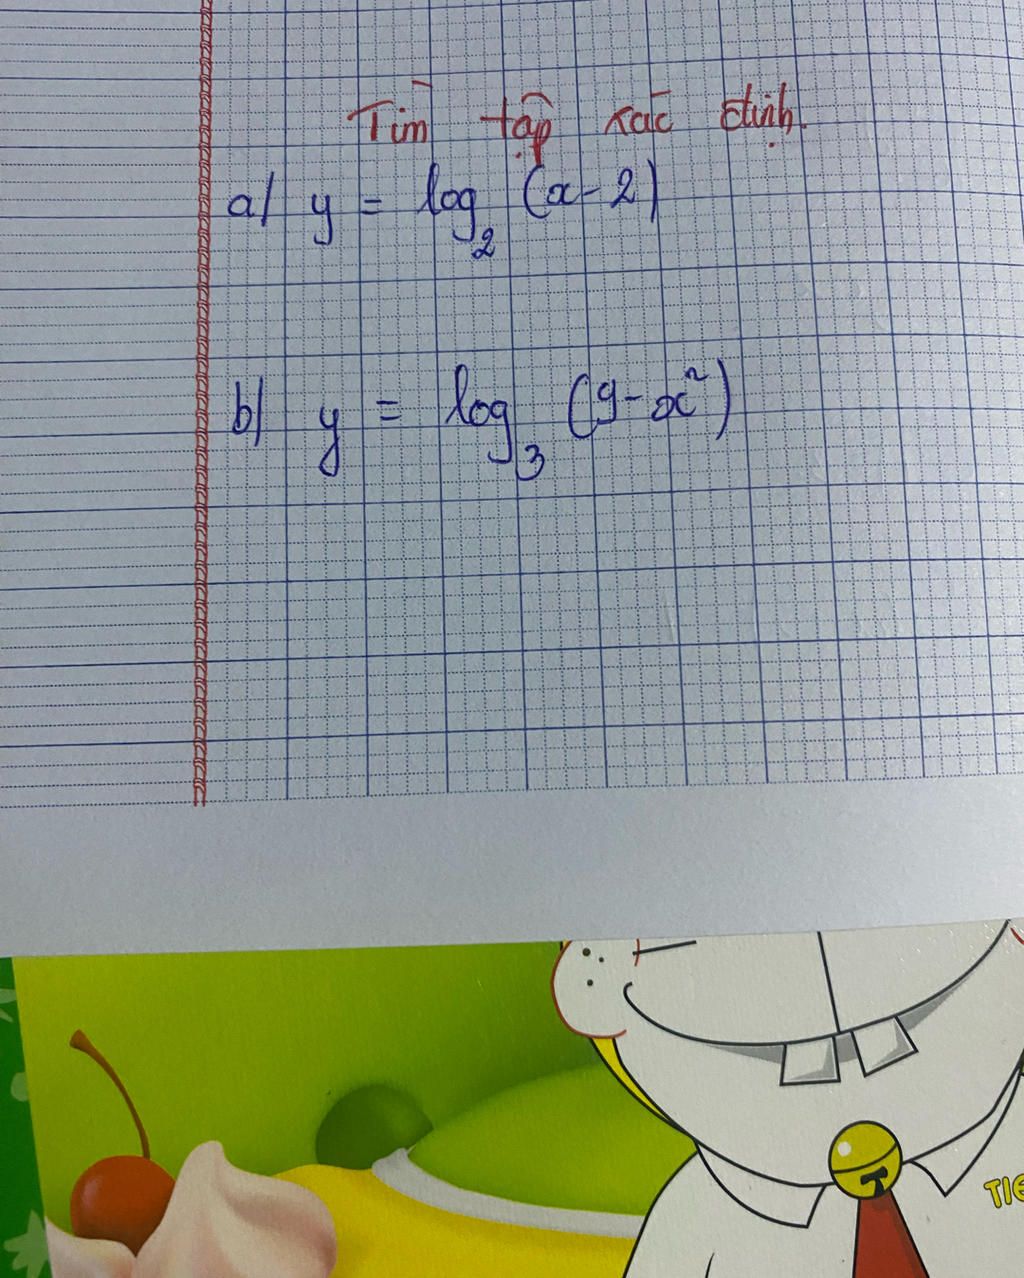 Tìm tập xác định.
a/ y = log₂ (x - 2)
b/ y = log₃ (9 - x²)